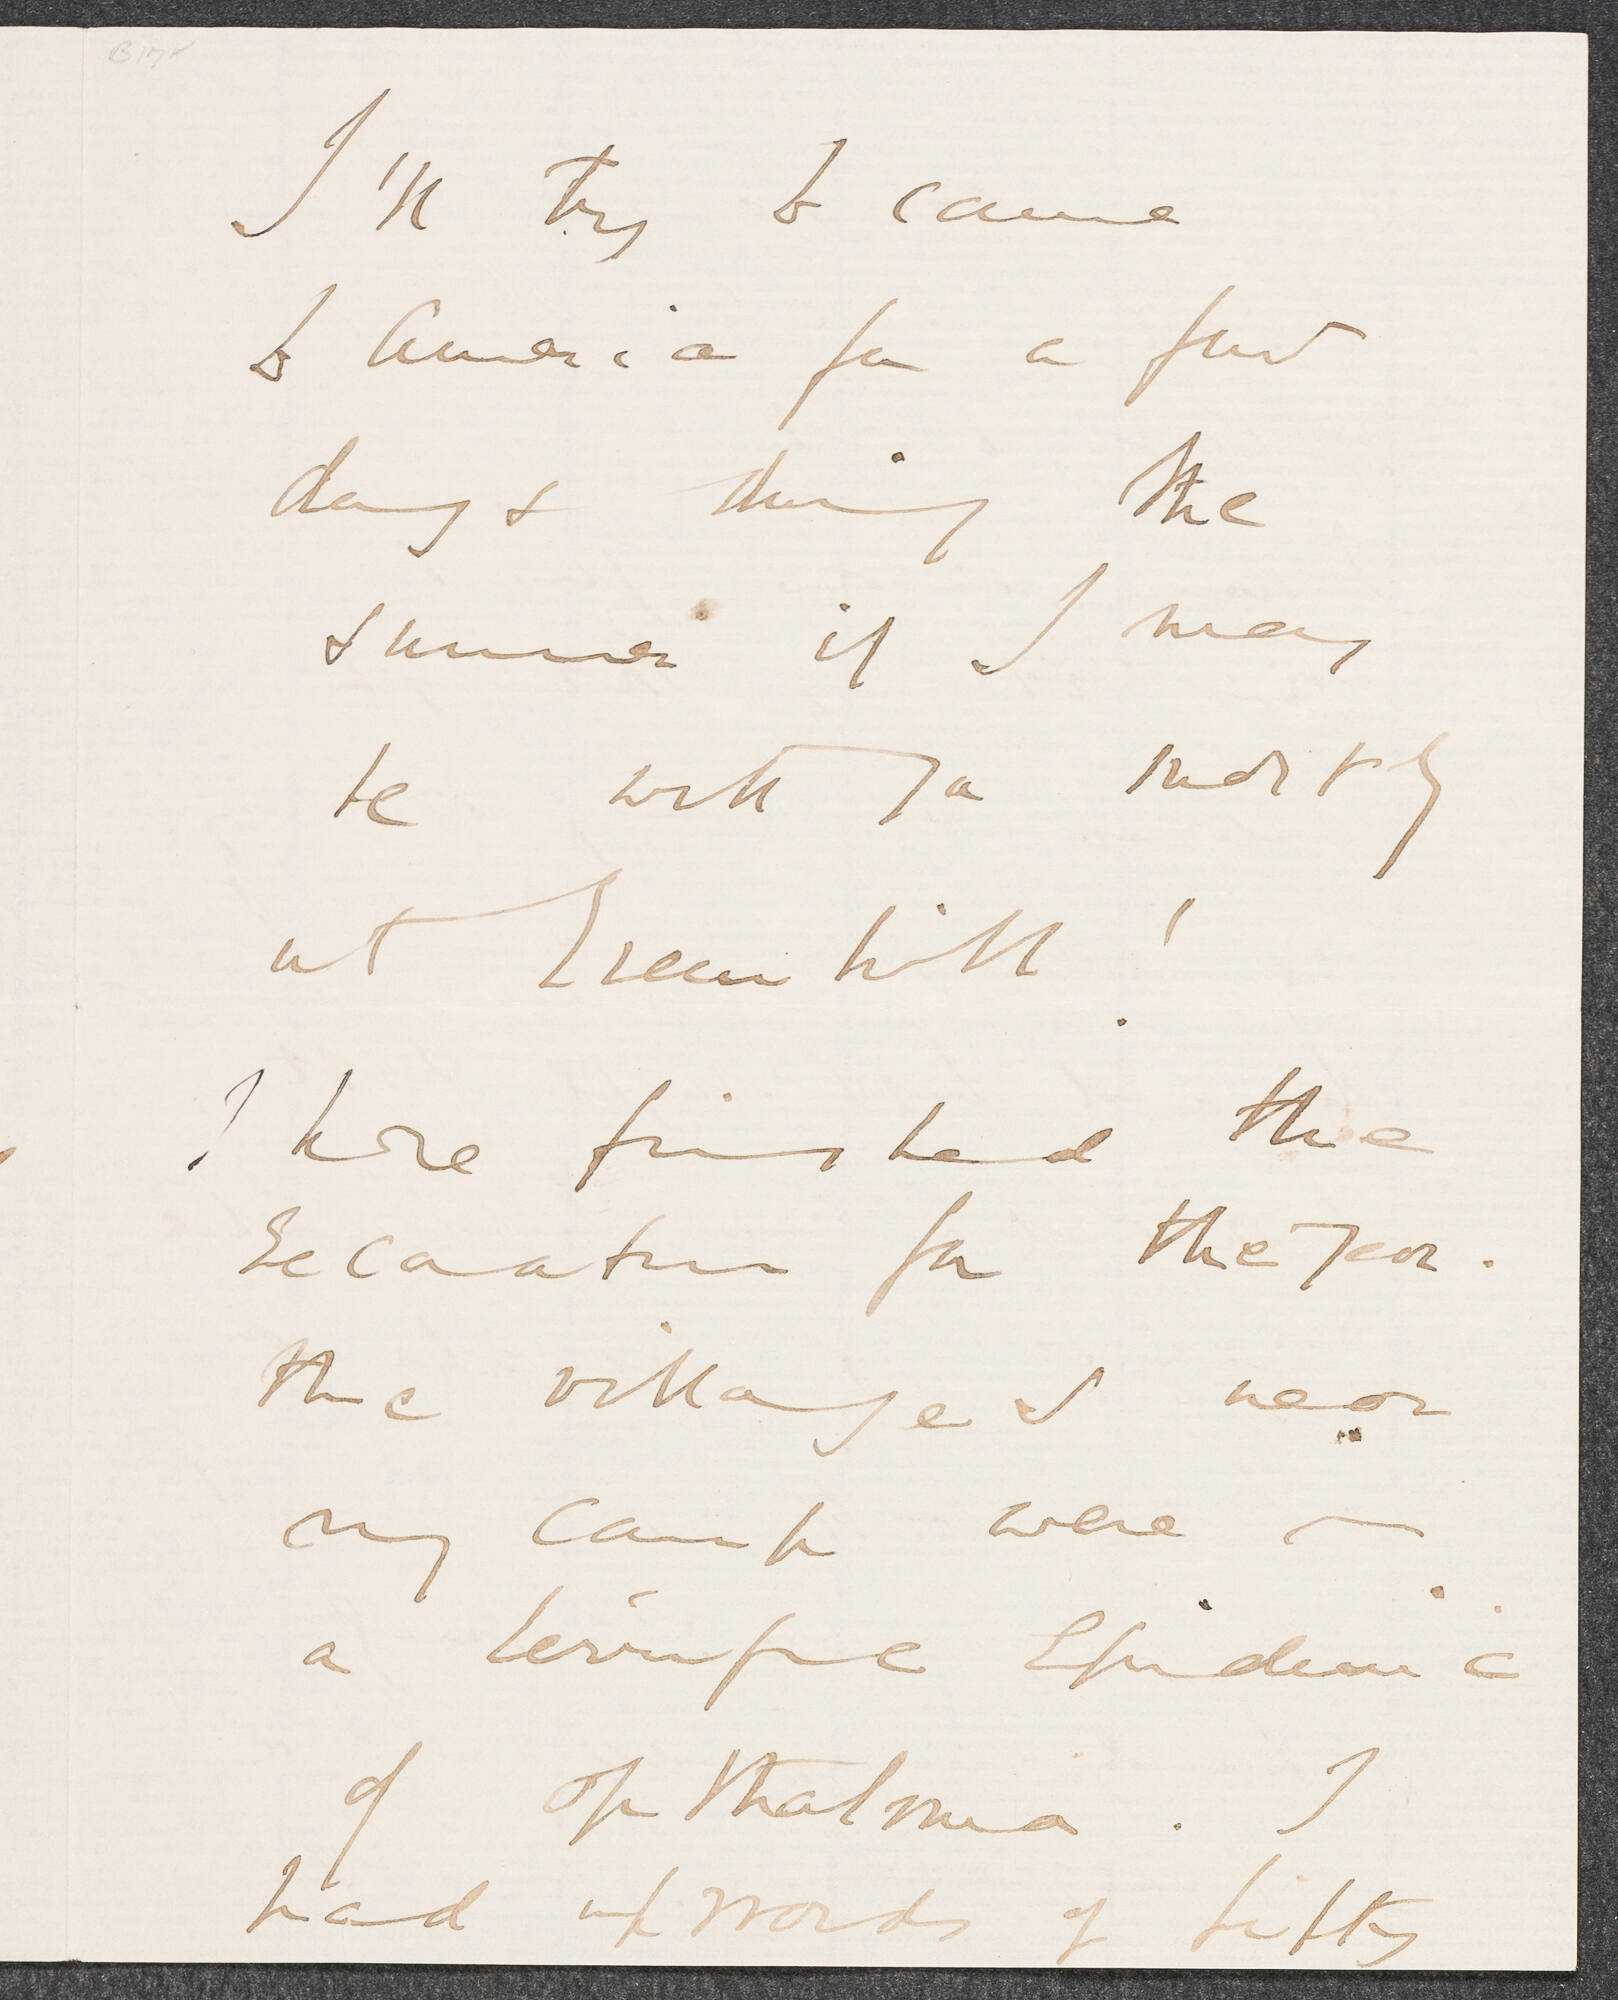 B17v
I'll try to come
to America for a few
days during the
summer if I may
be with you mostly
at Green hill!
I have finished the
Excavation for the year.
the villages near
my camp were in
a terrific Epidemic
of opthalmia. I
had upwards of fifty